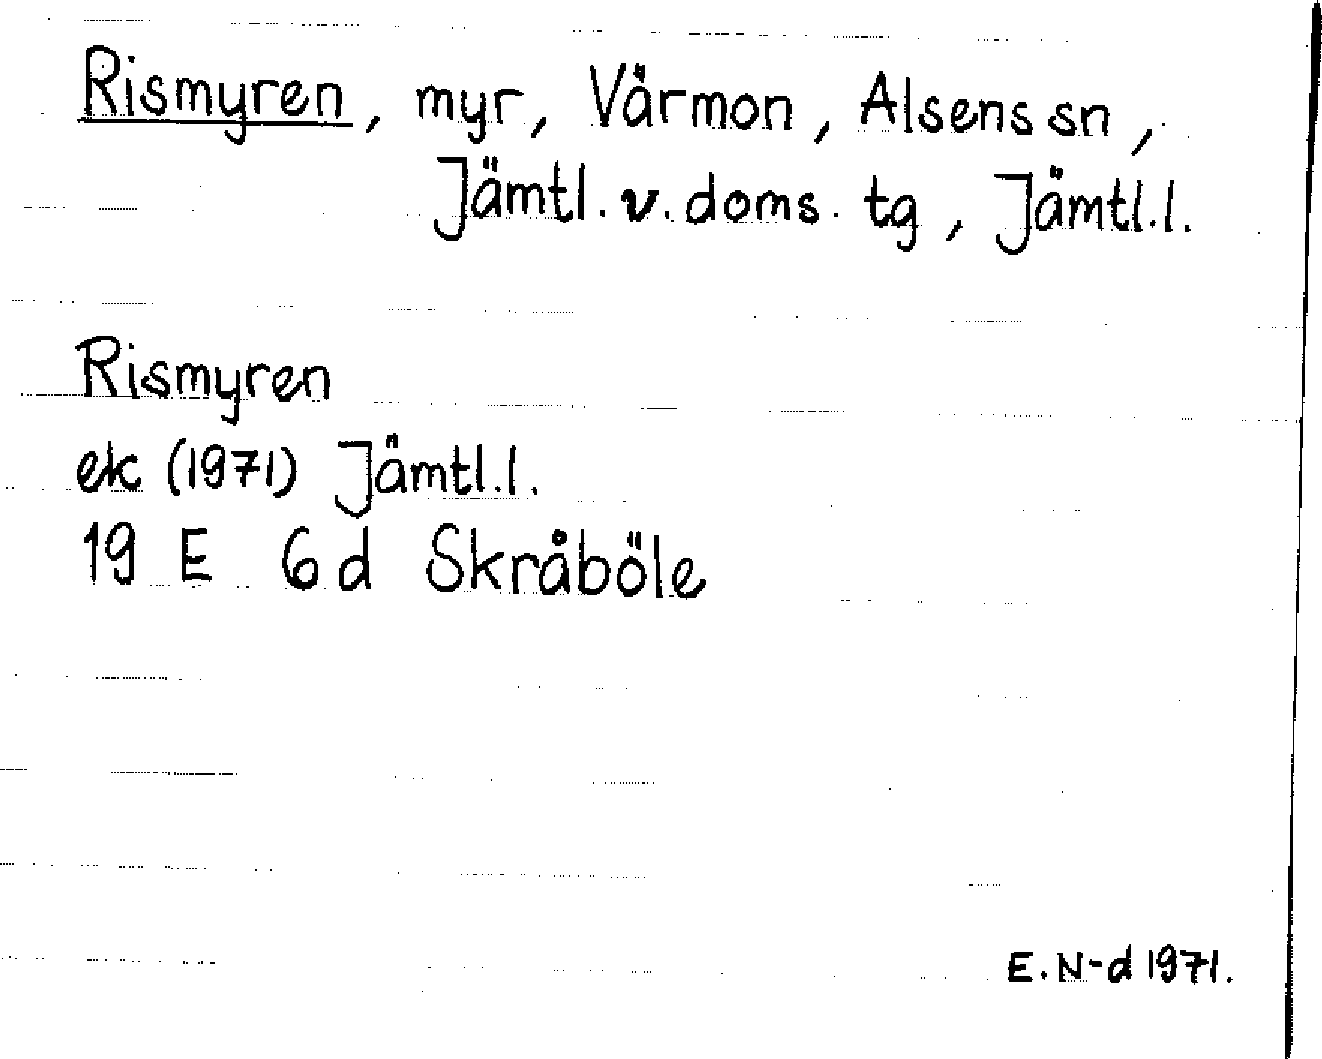 Rismyren, myr, Värmon, Alsens sn,
Jämtl. v. doms. tg, Jämtl.l.
Rismyren
ek (1971) Jämtl.l.
19 E 6d Skråböle
E.N-d 1971.